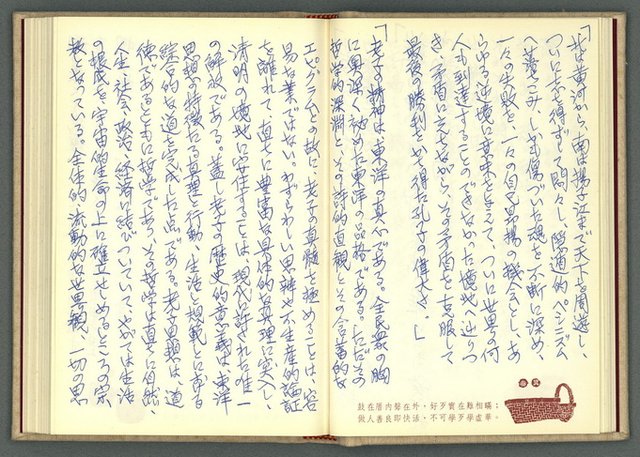 「北は黄河から、南は揚子江まで天下を周遊し、
ついに志を得ずして悶々し、隠遁的ペシミズム
へ落ちこみ、しかも傷づいた魂を、不断に深め、
一々の失敗を、一々の自己昂揚の機会とし、あ
らゆる逆境に意味を与えて、ついに世界の何
人も到達することのできなかった境地へ辿りつ
き、矛盾に立ちながら、その矛盾を克服して
最後の勝利をかち得た孔子の偉大さ。」
「老子の精神は東洋の真心である。全民衆の胸
に奥深く秘めた東洋の品格である。ただその
哲学的深淵と、その詩的直観とその含蓄的な
エピグラムとの故に、老子の真髄を極めることは、容
易な業ではない。わずらわしい思惟や不生産的論証
を離れて、直ちに豊富な具体的な真理に突入し、
清明の境地に安住することは、現代に許された唯一
の解放である。蓋し老子の歴史的意義は、東洋
思想の特徴たる真理と行動、生活と規範とに於ける
綜合的な道を完成した点である。老子思想は、道
徳であるとともに哲学であり、その哲学は直ちに自然、
人生、社会、政治、経済に結びついていて、やがては生活
の根底を宇宙的生命の上に確立せしめるところの宗
教となっている。全体的、流動的な世界観、一切の思
鼓在厝內聲在外，好歹實在難相瞞；
做人善良即快活，不可學歹學虛華。